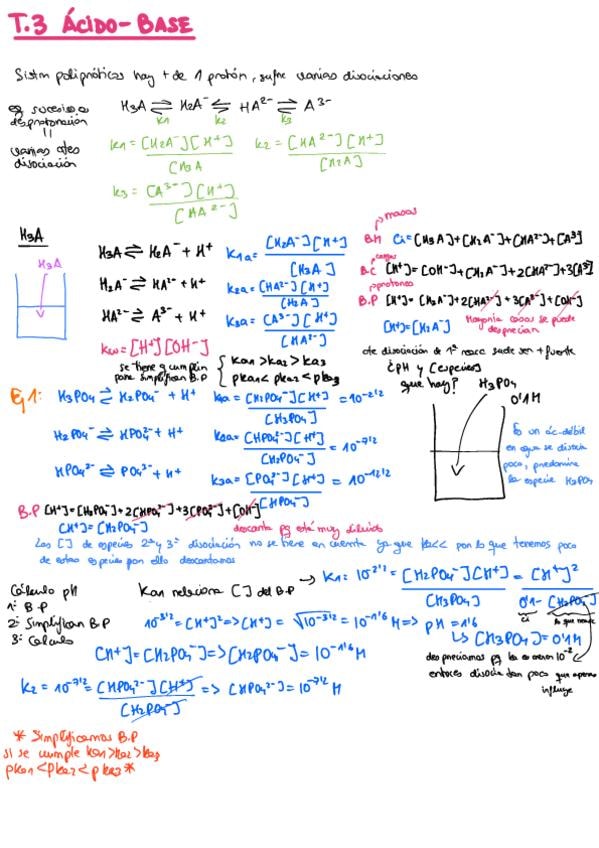 T.3 ÁCIDO-BASE
Sistm polipróticos hay + de 1 protón, sufre varias disociaciones
eq sucesivos desprotonación
||
varias ctes disociación
H₃A ⇌ H₂A⁻ ⇌ HA²⁻ ⇌ A³⁻
K1 K2 K3
K1 = [H₂A⁻][H⁺] / [H₃A
K2 = [HA²⁻][H⁺] / [H₂A]
K3 = [A³⁻][H⁺] / [HA²⁻]
H₃A
H₃A
H₃A ⇌ H₂A⁻ + H⁺
K1a = [H₂A⁻][H⁺] / [H₃A]
H₂A⁻ ⇌ HA²⁻ + H⁺
K2a = [HA²⁻][H⁺] / [H₂A]
HA²⁻ ⇌ A³⁻ + H⁺
K3a = [A³⁻][H⁺] / [HA²⁻]
Kw = [H⁺][OH⁻]
se tiene q cumplir para simplificar B.P
Ka1 > Ka2 > Ka3
pKa1 < pKa2 < pKa3
masas
B.M Ci = [H₃A] + [H₂A⁻] + [HA²⁻] + [A³⁻]
cargas
B.C [H⁺] = [OH⁻] + [H₂A⁻] + 2[HA²⁻] + 3[A³⁻]
protones
B.P [H⁺] = [H₂A⁻] + 2[HA²⁻] + 3[A³⁻] + [OH⁻]
[H⁺] = [H₂A⁻]
Mayoría casos se puede despreciar
cte disociación de 1ª reacc suele ser + fuerte
¿pH y [especies] que hay?
H₃PO₄
0'1M
Es un ác. débil
en agua se disocia
poco, predomina
la especie H₃PO₄
Ej 1:
H₃PO₄ ⇌ H₂PO₄⁻ + H⁺
K1a = [H₂PO₄⁻][H⁺] / [H₃PO₄] = 10⁻²'²
H₂PO₄⁻ ⇌ HPO₄²⁻ + H⁺
K2a = [HPO₄²⁻][H⁺] / [H₂PO₄⁻] = 10⁻⁷'²
HPO₄²⁻ ⇌ PO₄³⁻ + H⁺
K3a = [PO₄³⁻][H⁺] / [HPO₄²⁻] = 10⁻¹²'²
B.P [H⁺] = [H₂PO₄⁻] + 2[HPO₄²⁻] + 3[PO₄³⁻] + [OH⁻]
[H⁺] = [H₂PO₄⁻]
descarta pq está muy diluidos
Las [ ] de especies 2ª y 3ª disociación no se tiene en cuenta ya que Ka<< por lo que tenemos poco
de estas especies por ello descartamos
Cálculo pH
1: B.P
2: Simplificar B.P
3: Calculo
Ka1 relaciona [ ] del B.P
→ K1 = 10⁻²'² = [H₂PO₄⁻][H⁺] / [H₃PO₄] = [H⁺]² / 0'1 - [H₂PO₄⁻]
Ci
10⁻³'² = [H⁺]² => [H⁺] = √10⁻³'² = 10⁻¹'⁶ M => pH = 1'6
↳ [H₃PO₄] = 0'1M
[H⁺] = [H₂PO₄⁻] => [H₂PO₄⁻] = 10⁻¹'⁶ M
despreciamos pq
entonces disocia tan poco que apenas
influye
K2 = 10⁻⁷'² = [HPO₄²⁻][H⁺] / [H₂PO₄⁻] => [HPO₄²⁻] = 10⁻⁷'² M
* Simplificamos B.P
si se cumple Ka1 > Ka2 > Ka3
pKa1 < pKa2 < pKa3 *